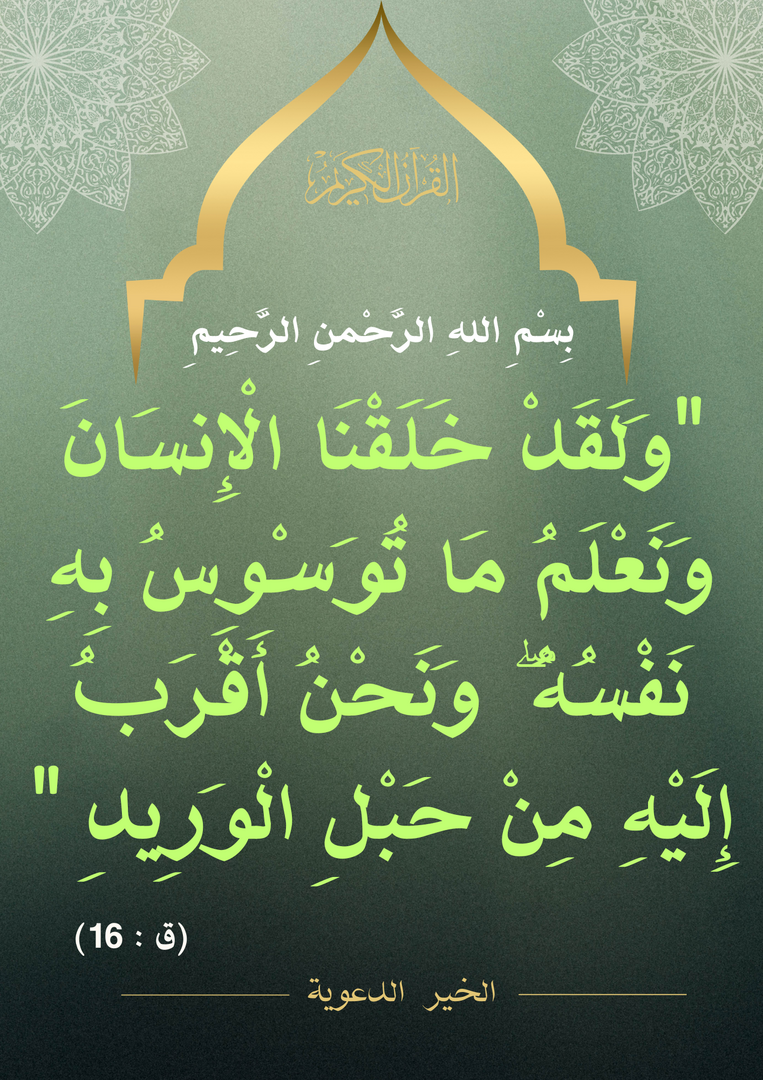 القرآن الكريم
بِسْمِ اللهِ الرَّحْمنِ الرَّحِيمِ
"وَلَقَدْ خَلَقْنَا الْإِنسَانَ
وَنَعْلَمُ مَا تُوَسْوِسُ بِهِ
نَفْسُهُ ۖ وَنَحْنُ أَقْرَبُ
إِلَيْهِ مِنْ حَبْلِ الْوَرِيدِ "
(ق : 16)
الخير الدعوية